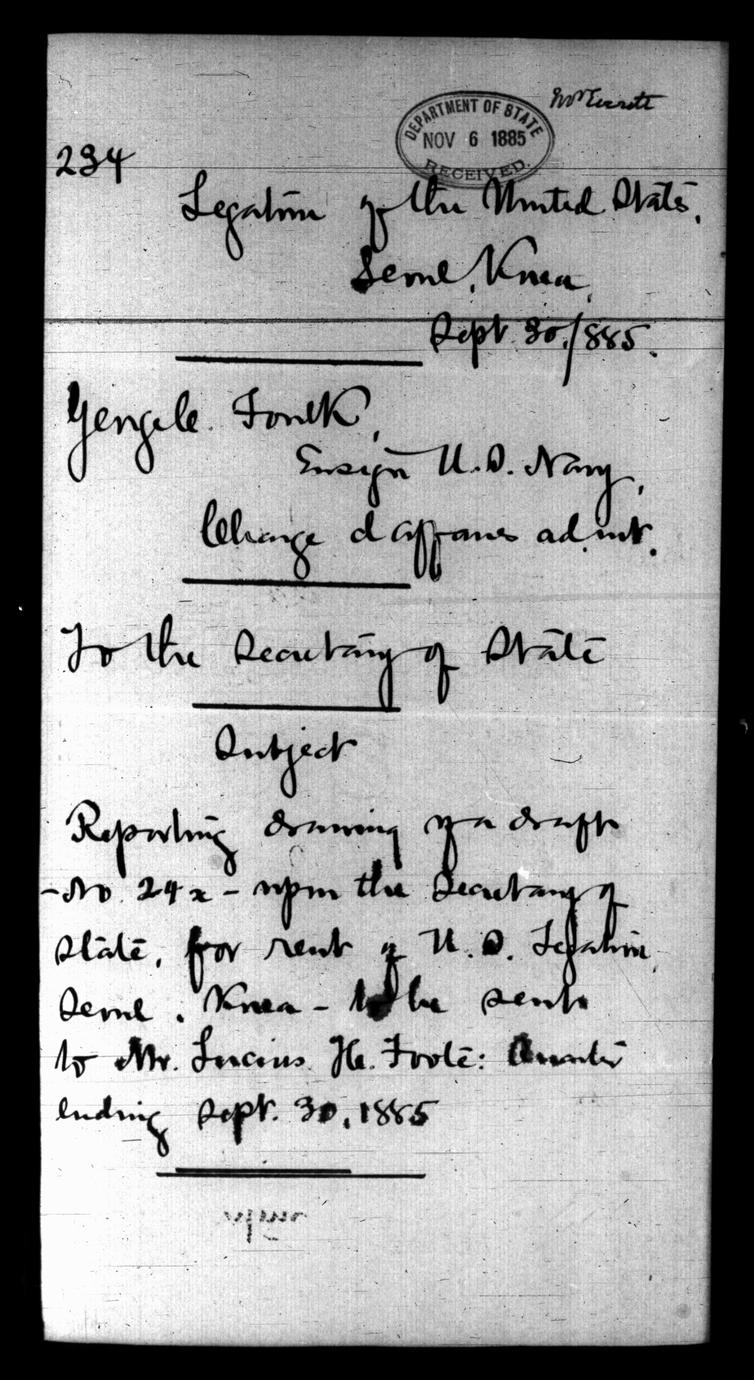 DEPARTMENT OF STATE
NOV 6 1885
RECEIVED.
234
Legation of the United States,
Seoul, Korea,
Sept 30, 1885.
George C. Foulk,
Ensign U.S. Navy,
Charge d'affaires ad. int.
To the Secretary of State
Subject
Reporting drawing of a draft
- No 24 x - upon the Secretary of
State, for rent of U.S. Legation,
Seoul, Korea - to be sent
to Mr. Lucius H. Foote: Quarter
ending Sept. 30, 1885